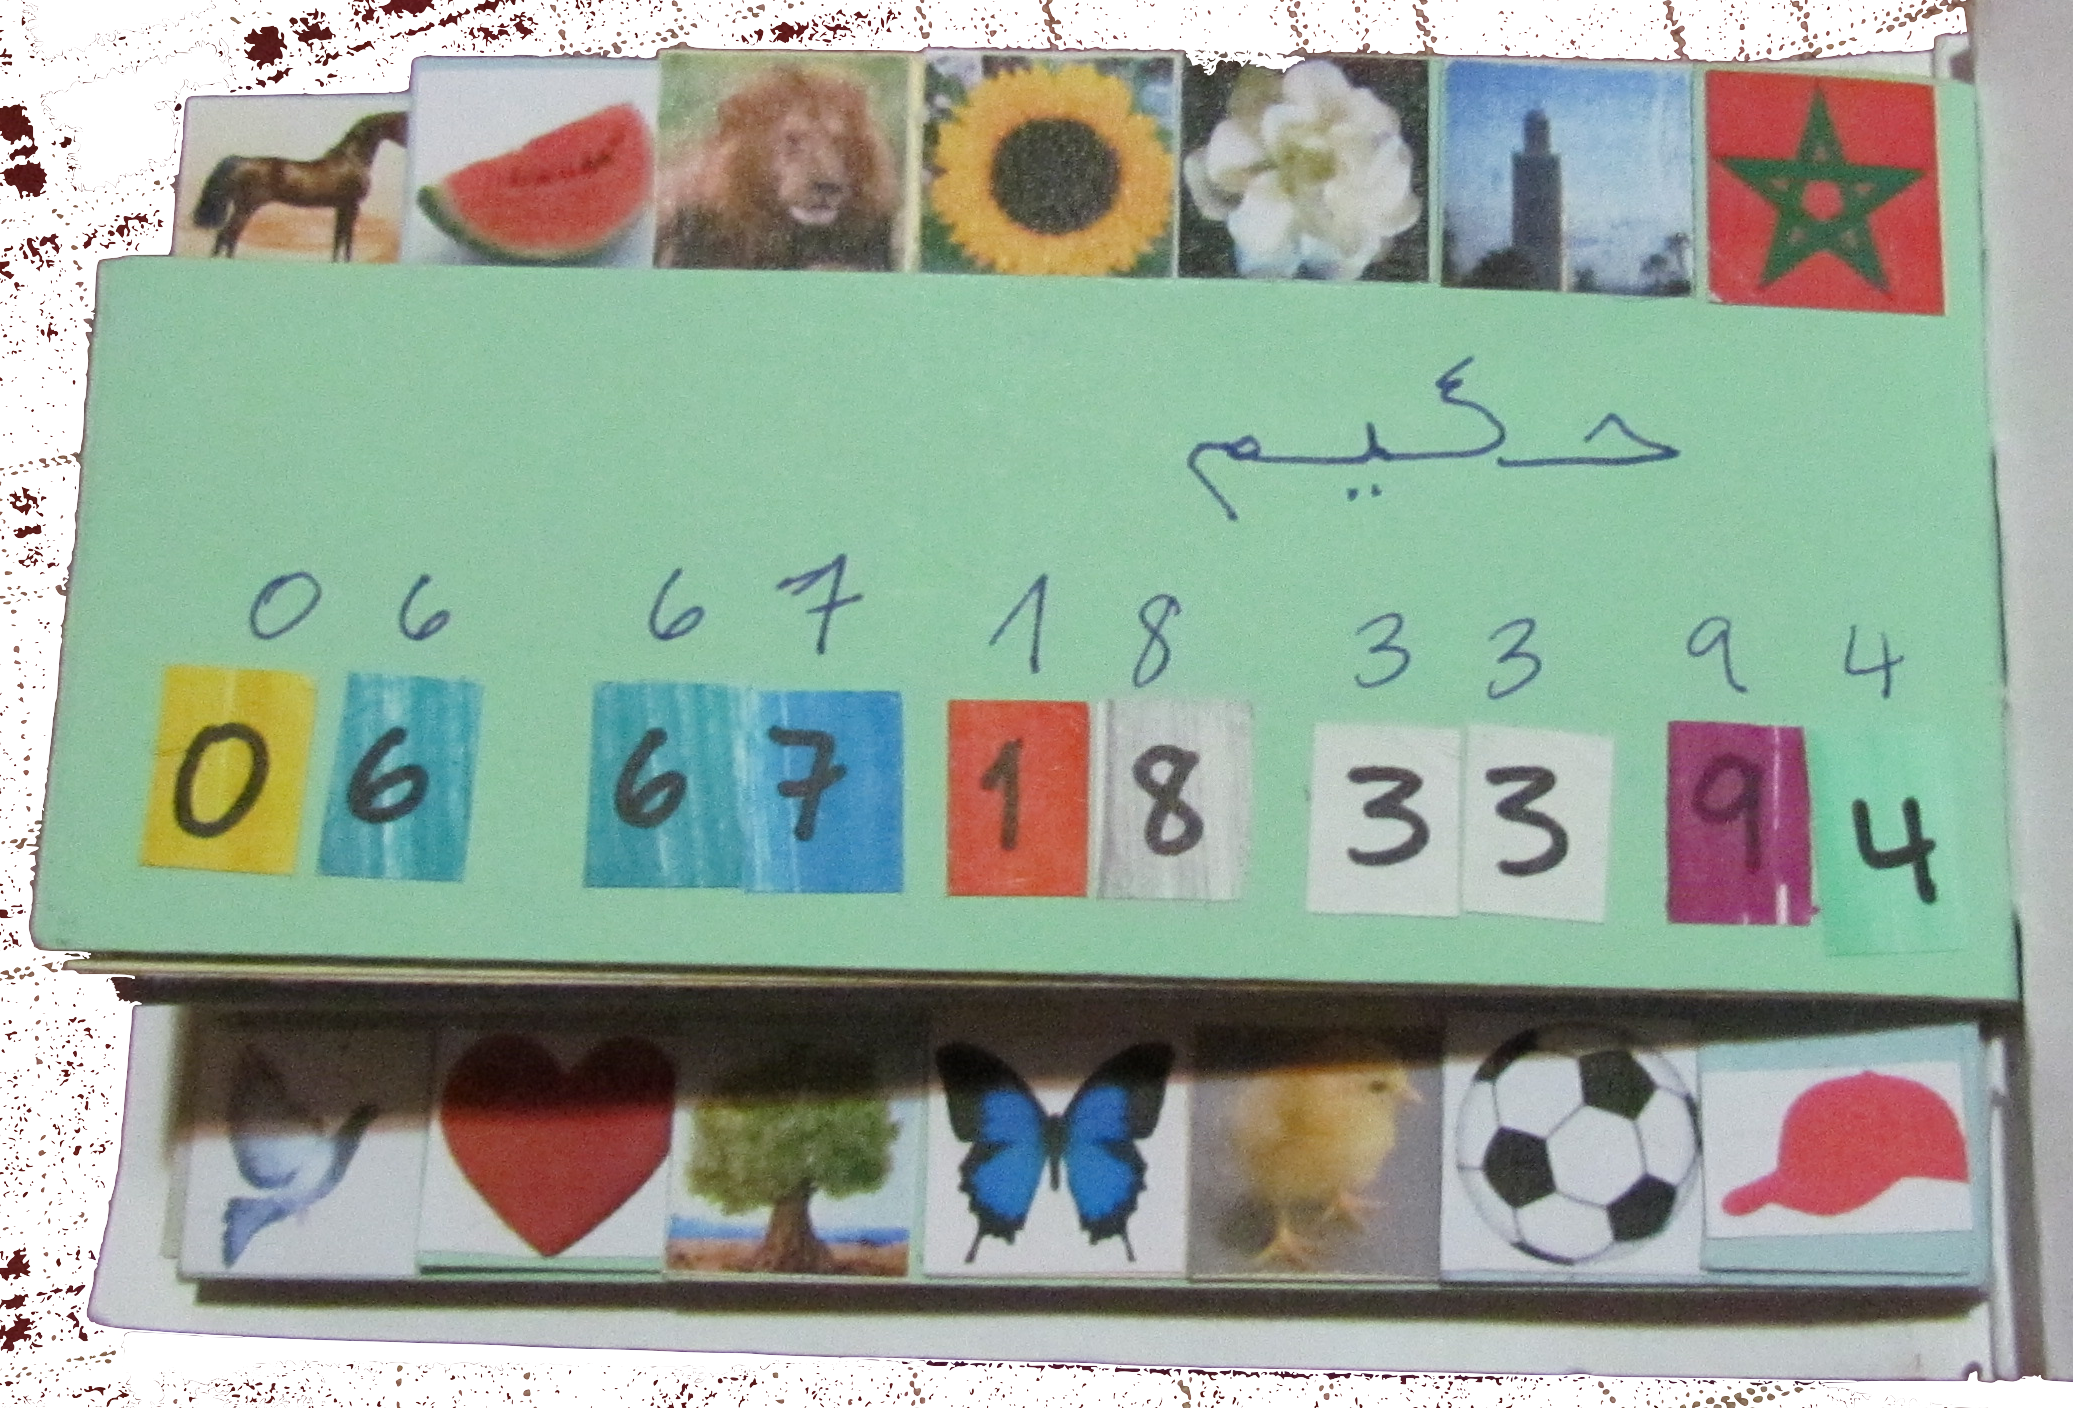 حكيم
0 6 6 7 1 8 3 3 9 4
0 6 6 7 1 8 3 3 9 4